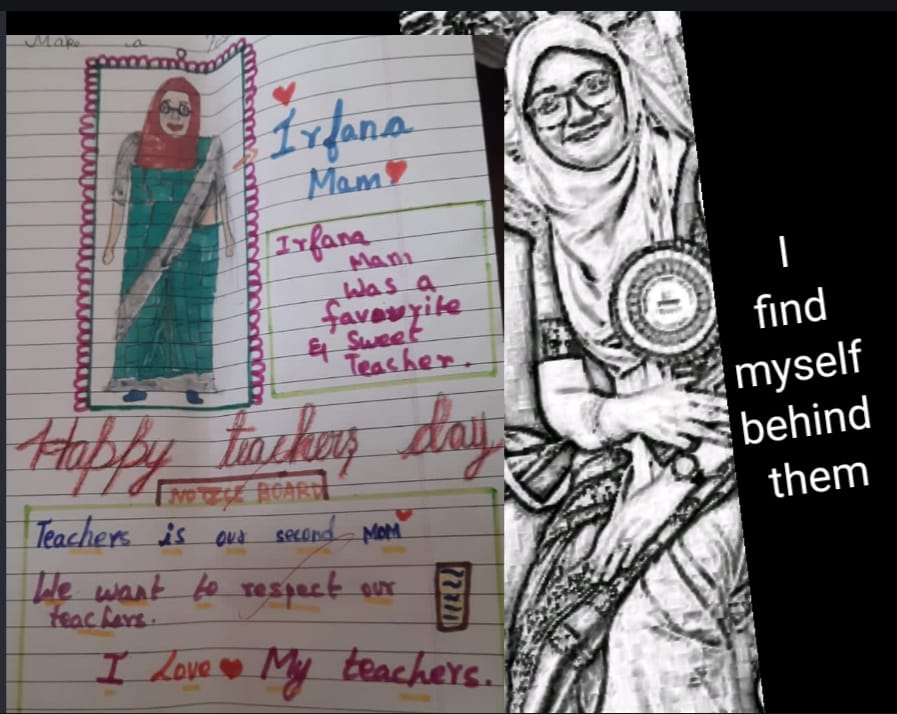 Make a
Irfana
Mam
Irfana
Mam
Was a
favourite
& Sweet
Teacher.
Happy teachers day
NOTICE BOARD
Teachers is our second MOM
We want to respect our
teachers.
I Love My teachers.
I
find
myself
behind
them